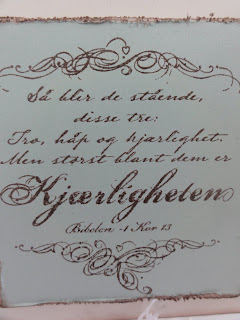 Så blir de stående,
disse tre:
Tro, håp og kjærlighet.
Men størst blant dem er
Kjærligheten
Bibelen - 1 Kor 13